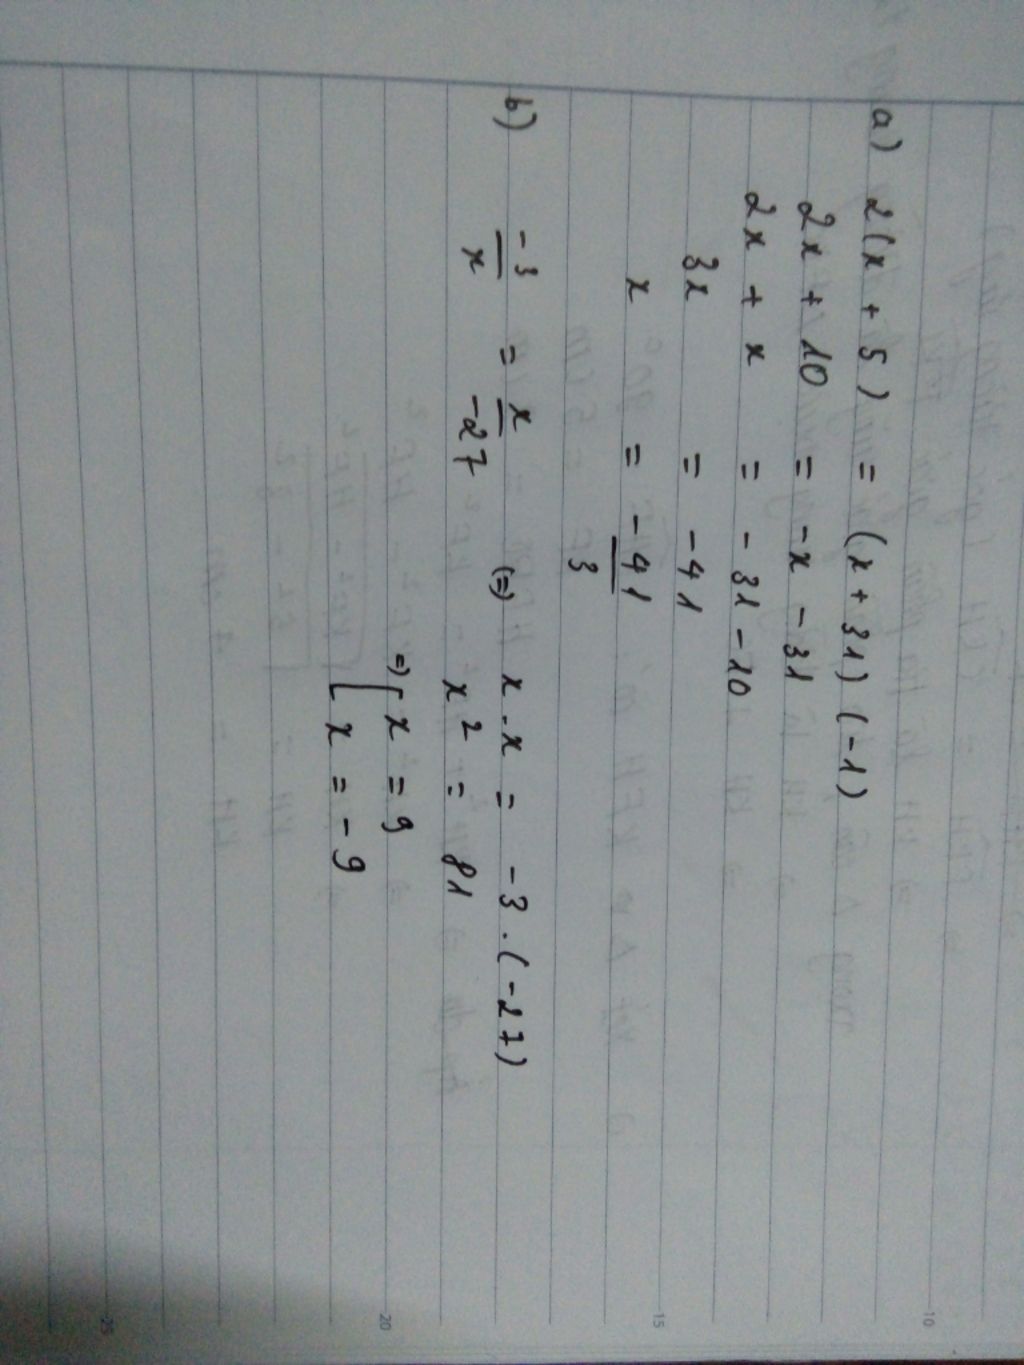 a) 2(x + 5) = (x + 31)(-1)
2x + 10 = -x - 31
2x + x = - 31 - 10
3x = - 41
x = - 41
3
b) -3 = x (=) x . x = - 3 . (-27)
x -27 x² = 81
=) [ x = 9
x = - 9
10
15
20
25